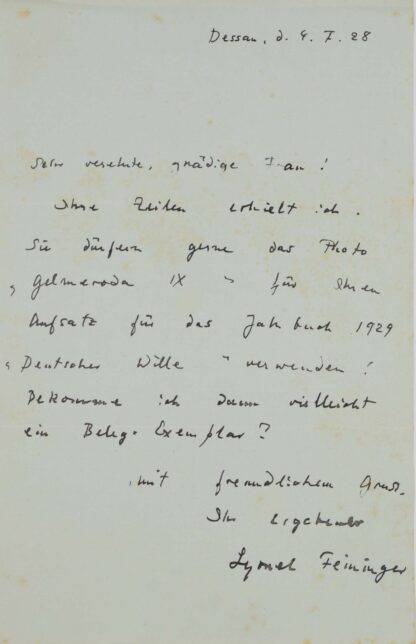 Dessau, d. 4. I. 28
Sehr verehrte, gnädige Frau!
Ihre Zeilen erhielt ich.
Sie dürfen gerne das Photo
„Gelmeroda IX“ für Ihren
Aufsatz für das Jahrbuch 1929
„Deutscher Wille“ verwenden!
Bekomme ich dann vielleicht
ein Beleg-Exemplar?
mit freundlichem Gruss.
Ihr ergebener
Lyonel Feininger